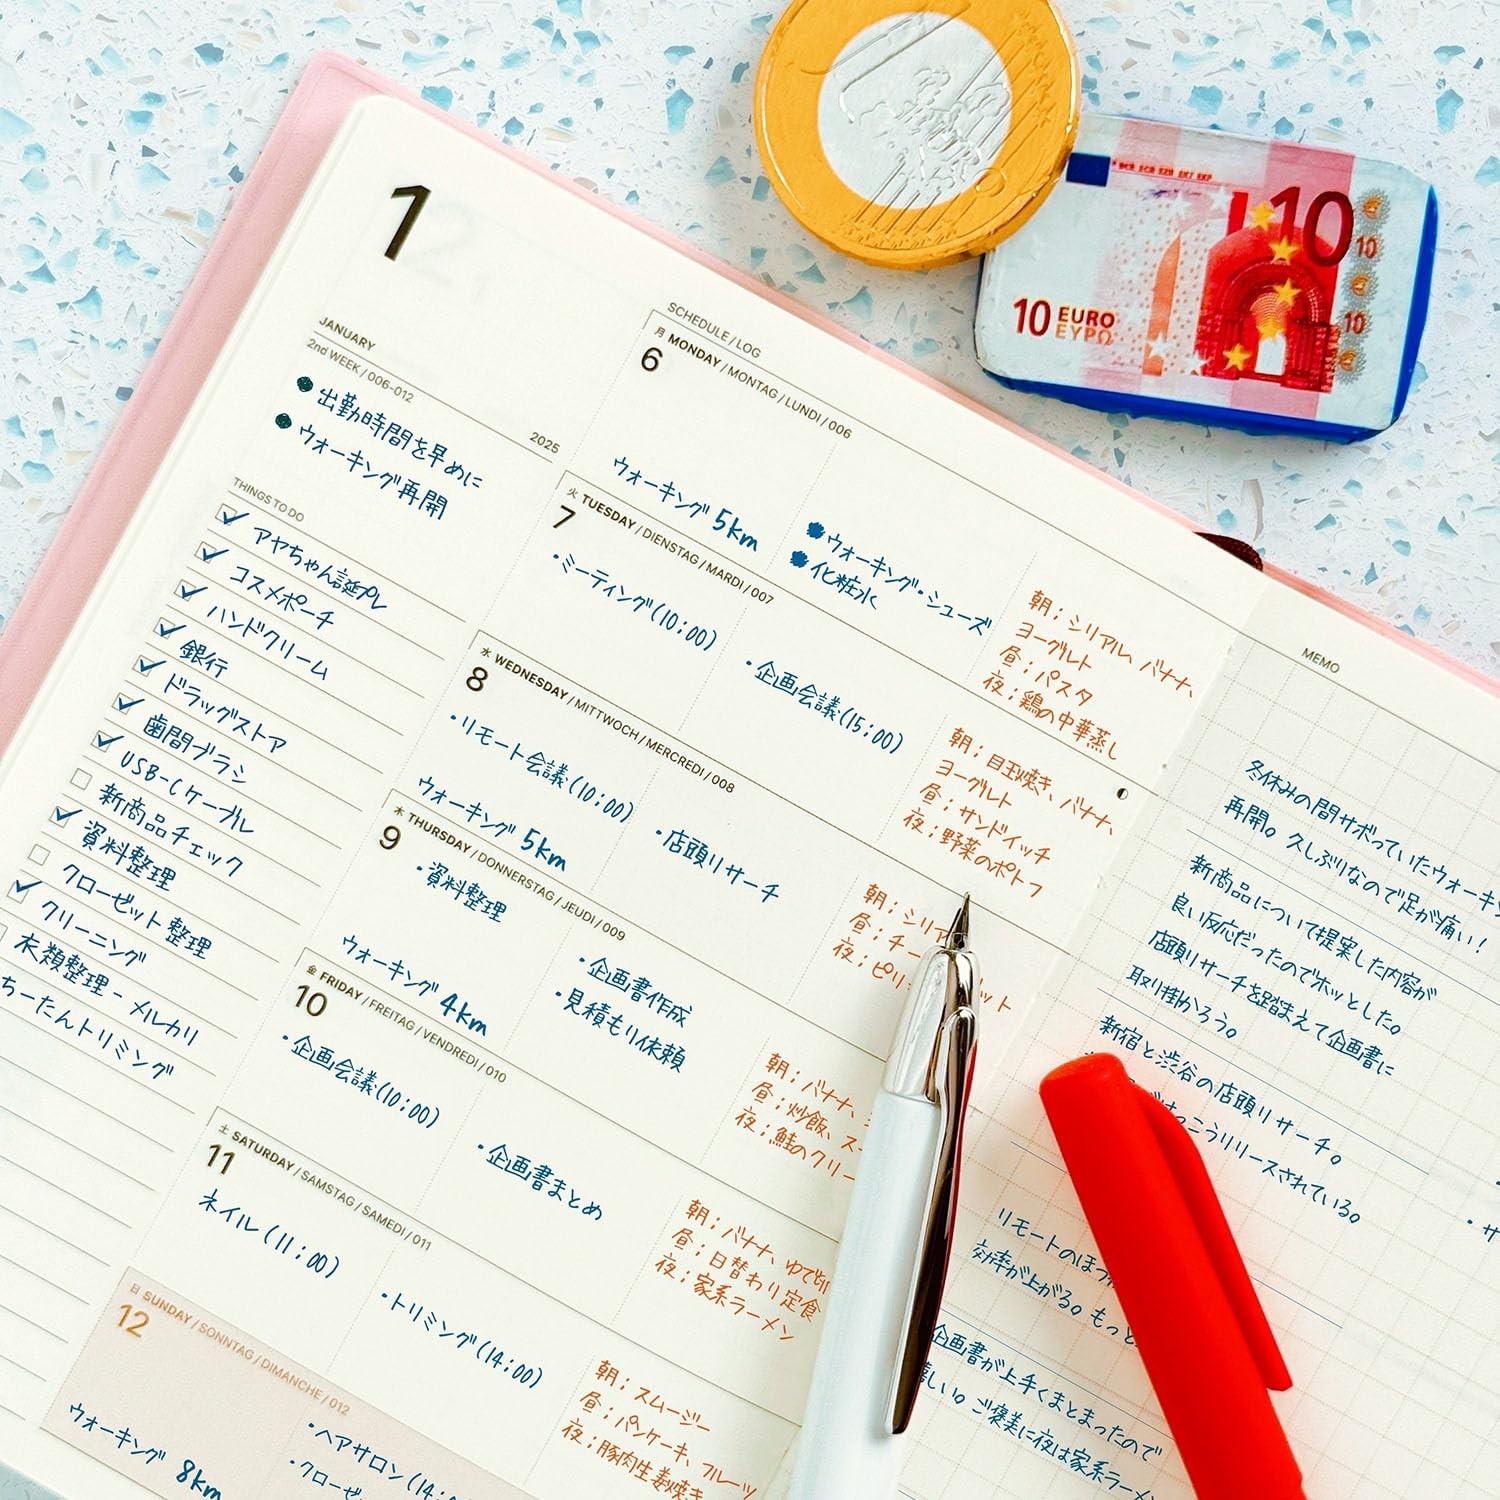 1
JANUARY
2nd WEEK / 006-012
2025
● 出勤時間を早めに
● ウォーキング再開
THINGS TO DO
アヤちゃん誕プレ
コスメポーチ
ハンドクリーム
銀行
ドラッグストア
歯間ブラシ
USB-Cケーブル
新商品チェック
資料整理
クローゼット整理
クリーニング
衣類整理-メルカリ
ちーたんトリミング
SCHEDULE / LOG
月 MONDAY / MONTAG / LUNDI / 006
6
ウォーキング 5km
●ウォーキング・シューズ
●化粧水
朝；シリアル、バナナ、
ヨーグルト
昼；パスタ
夜；鶏の中華蒸し
火 TUESDAY / DIENSTAG / MARDI / 007
7
・ミーティング(10:00)
・企画会議(15:00)
朝；目玉焼き、バナナ、
ヨーグルト
昼；サンドイッチ
夜；野菜のポトフ
水 WEDNESDAY / MITTWOCH / MERCREDI / 008
8
・リモート会議(10:00)
ウォーキング 5km
・店頭リサーチ
朝；シリア
昼；チー
夜；ピリ
木 THURSDAY / DONNERSTAG / JEUDI / 009
9
・資料整理
ウォーキング 4km
・企画書作成
・見積もり依頼
朝；バナナ、
昼；炒飯、スー
夜；鮭のクリー
金 FRIDAY / FREITAG / VENDREDI / 010
10
・企画会議(10:00)
・企画書まとめ
朝；バナナ、ゆで卵
昼；日替わり定食
夜；家系ラーメン
土 SATURDAY / SAMSTAG / SAMEDI / 011
11
ネイル(11:00)
・トリミング(14:00)
朝；スムージー
昼；パンケーキ、フルーツ
夜；豚肉生姜焼き
日 SUNDAY / SONNTAG / DIMANCHE / 012
12
ウォーキング 8km
・ヘアサロン(14:
・クローゼ
MEMO
冬休みの間サボっていたウォーキン
再開。久しぶりなので足が痛い！
新商品について提案した内容が
良い反応だったのでホッとした。
店頭リサーチを踏まえて企画書に
取り掛かろう。
新宿と渋谷の店頭リサーチ。
けっこうリリースされている。
リモートのほうが
効率が上がる。もっと
企画書が上手くまとまったので
嬉しい。ご褒美に夜は家系ラーメ
・サ
EURO
10
10
10
10 EURO
ΕΥΡΩ